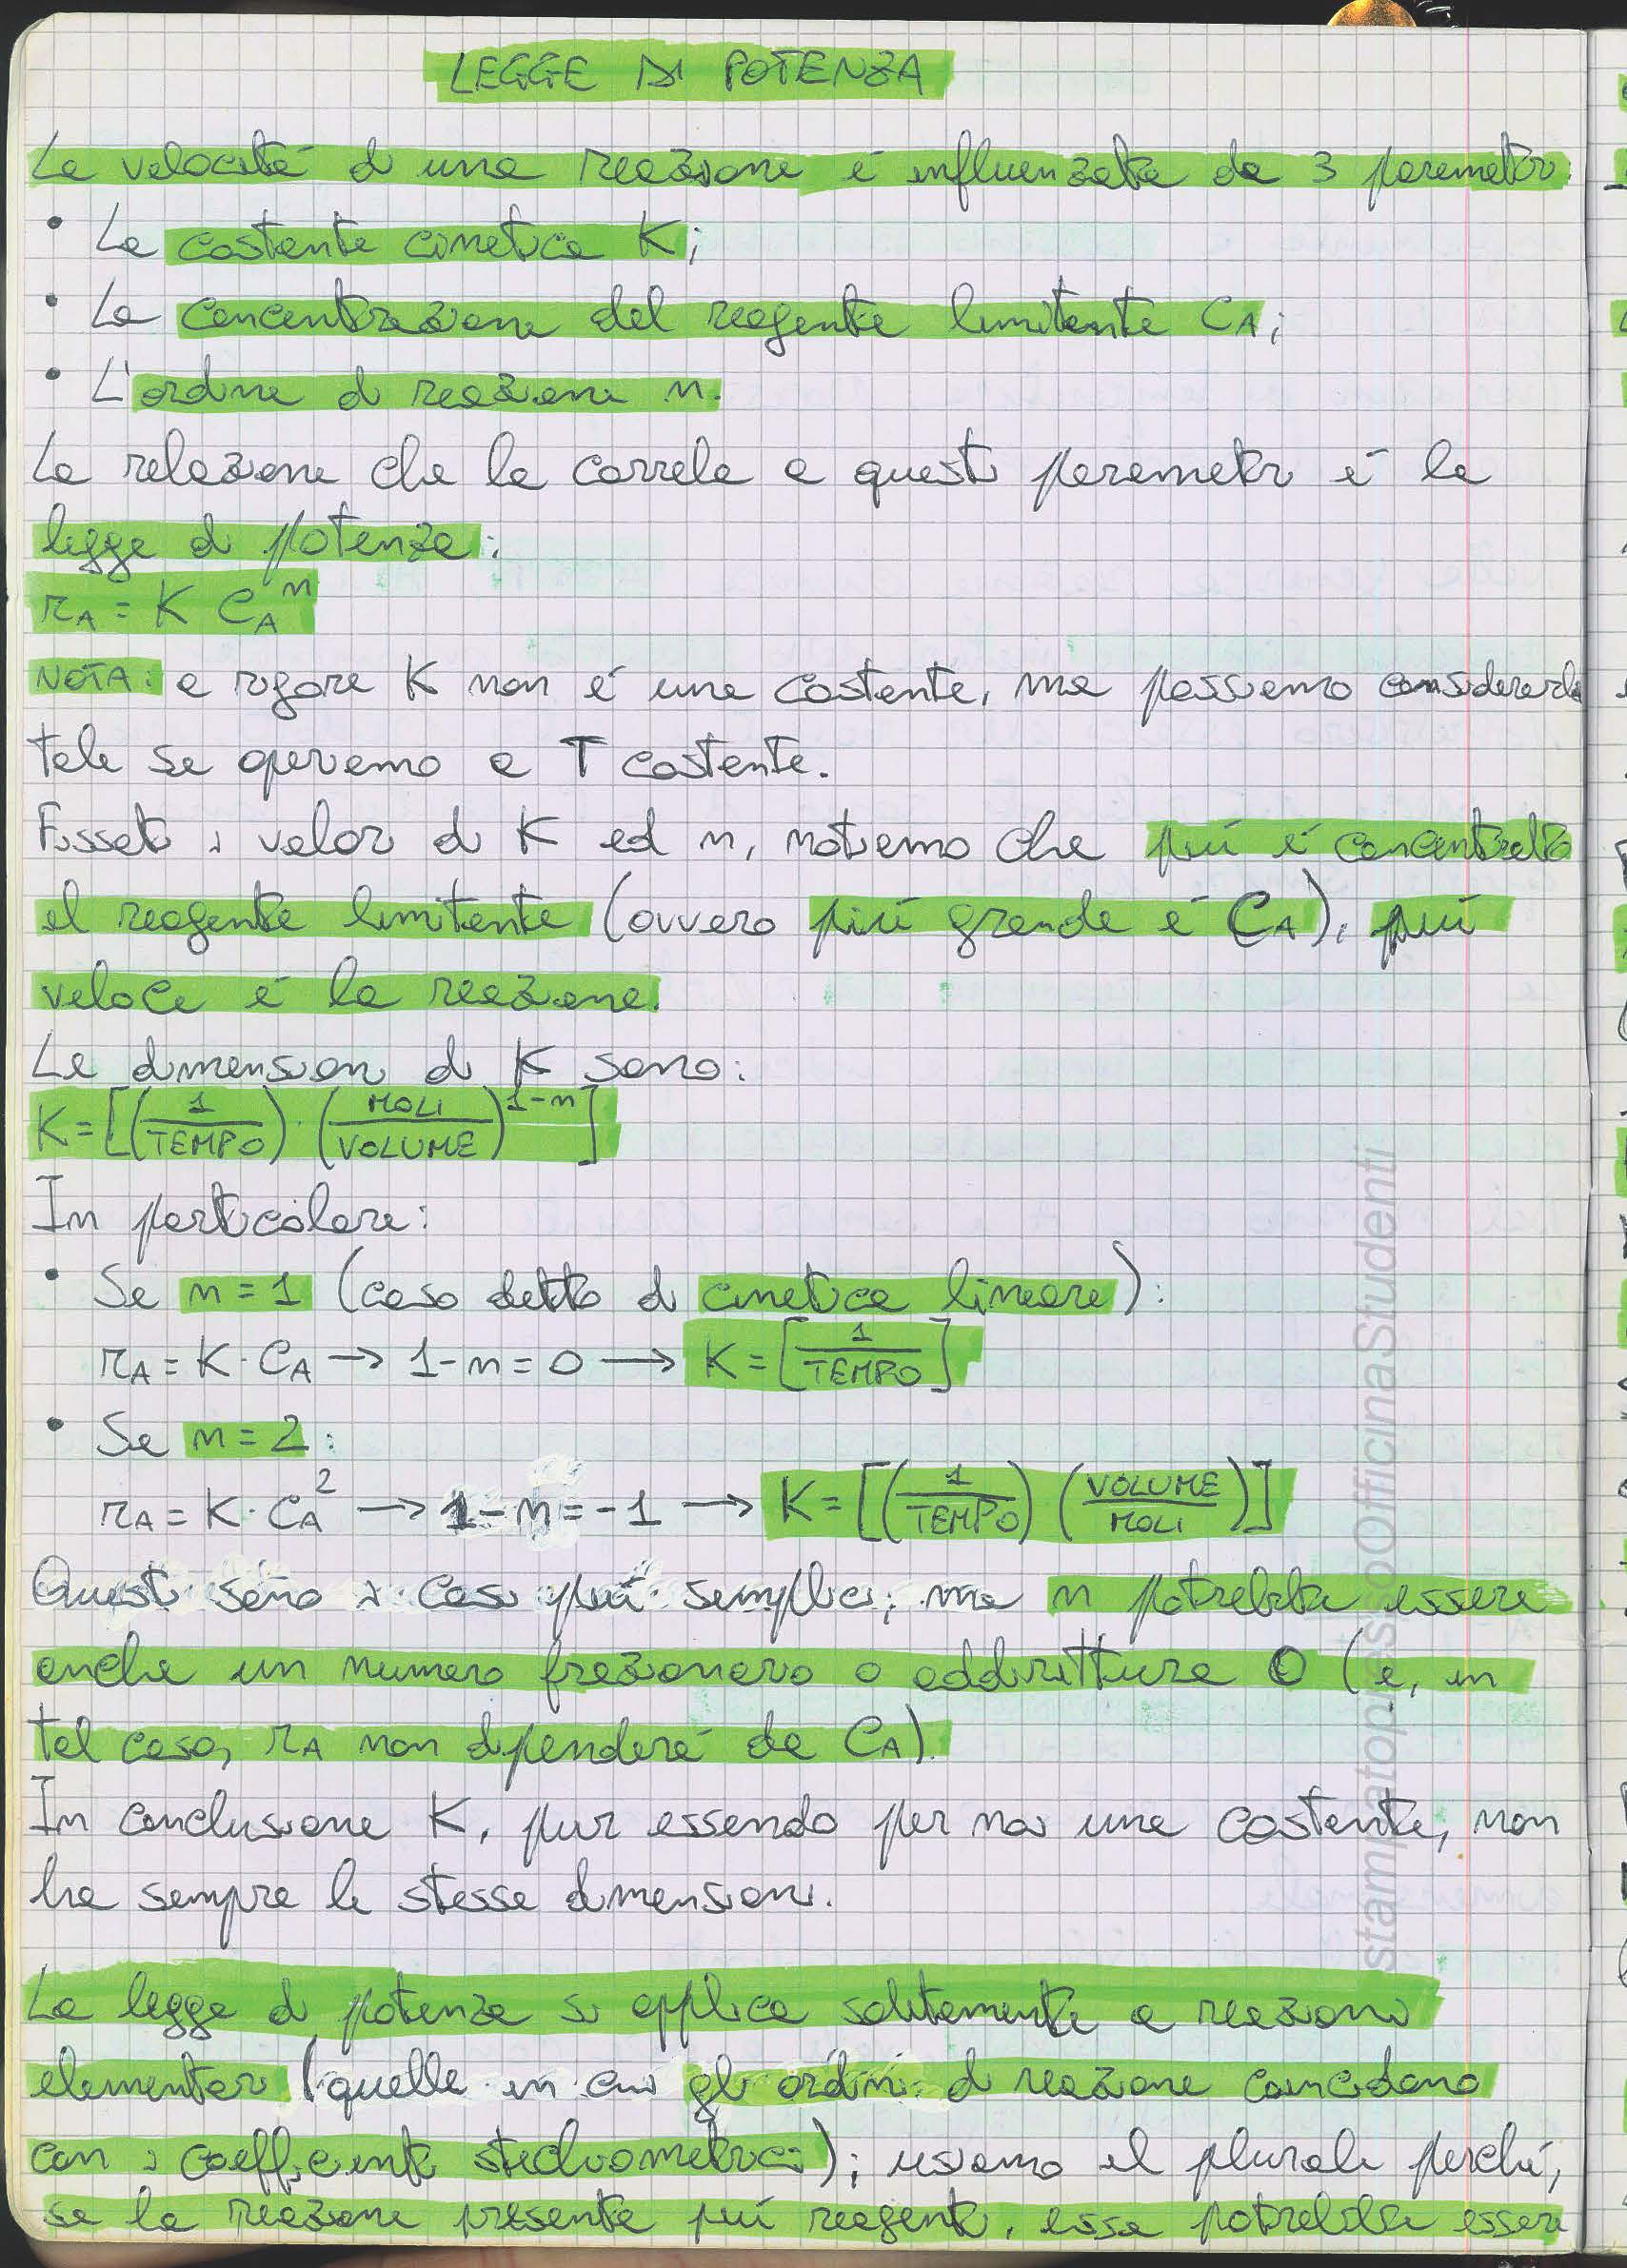 LEGGE DI POTENZA
La velocità di una reazione è influenzata da 3 parametri:
• La costante cinetica K;
• La concentrazione del reagente limitante CA;
• L'ordine di reazione n.
La relazione che la correla a questi parametri è la
legge di potenza:
rA = K CA^n
NOTA: a rigore K non è una costante, ma possiamo considerarla
tale se operiamo a T costante.
Fissati i valori di K ed n, notiamo che più è concentrato
il reagente limitante (ovvero più grande è CA), più
veloce è la reazione.
Le dimensioni di K sono:
K = [(1/TEMPO) · (MOLI/VOLUME)^1-n]
In particolare:
• Se n = 1 (caso detto di cinetica lineare):
rA = K · CA → 1-n = 0 → K = [1/TEMPO]
• Se n = 2:
rA = K · CA^2 → 1-n = -1 → K = [(1/TEMPO) (VOLUME/MOLI)]
Questi sono i casi più semplici, ma n potrebbe essere
anche un numero frazionario o addirittura 0 (e, in
tal caso, rA non dipenderà da CA).
In conclusione K, pur essendo per noi una costante, non
ha sempre le stesse dimensioni.
La legge di potenza si applica solitamente a reazioni
elementari (quelle in cui gli ordini di reazione coincidono
con i coefficienti stechiometrici); usiamo il plurale perché,
se la reazione presenta più reagenti, essa potrebbe essere
stampatopressoOfficinaStudenti